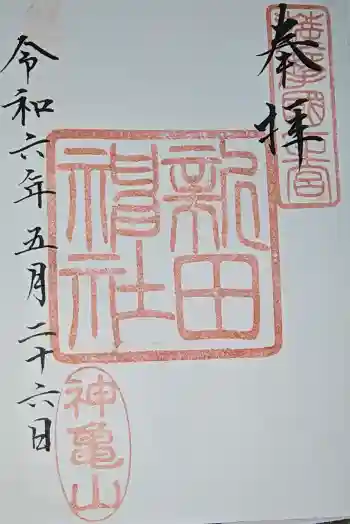 奉拝
新田
神社
令和六年五月二十六日
神亀山